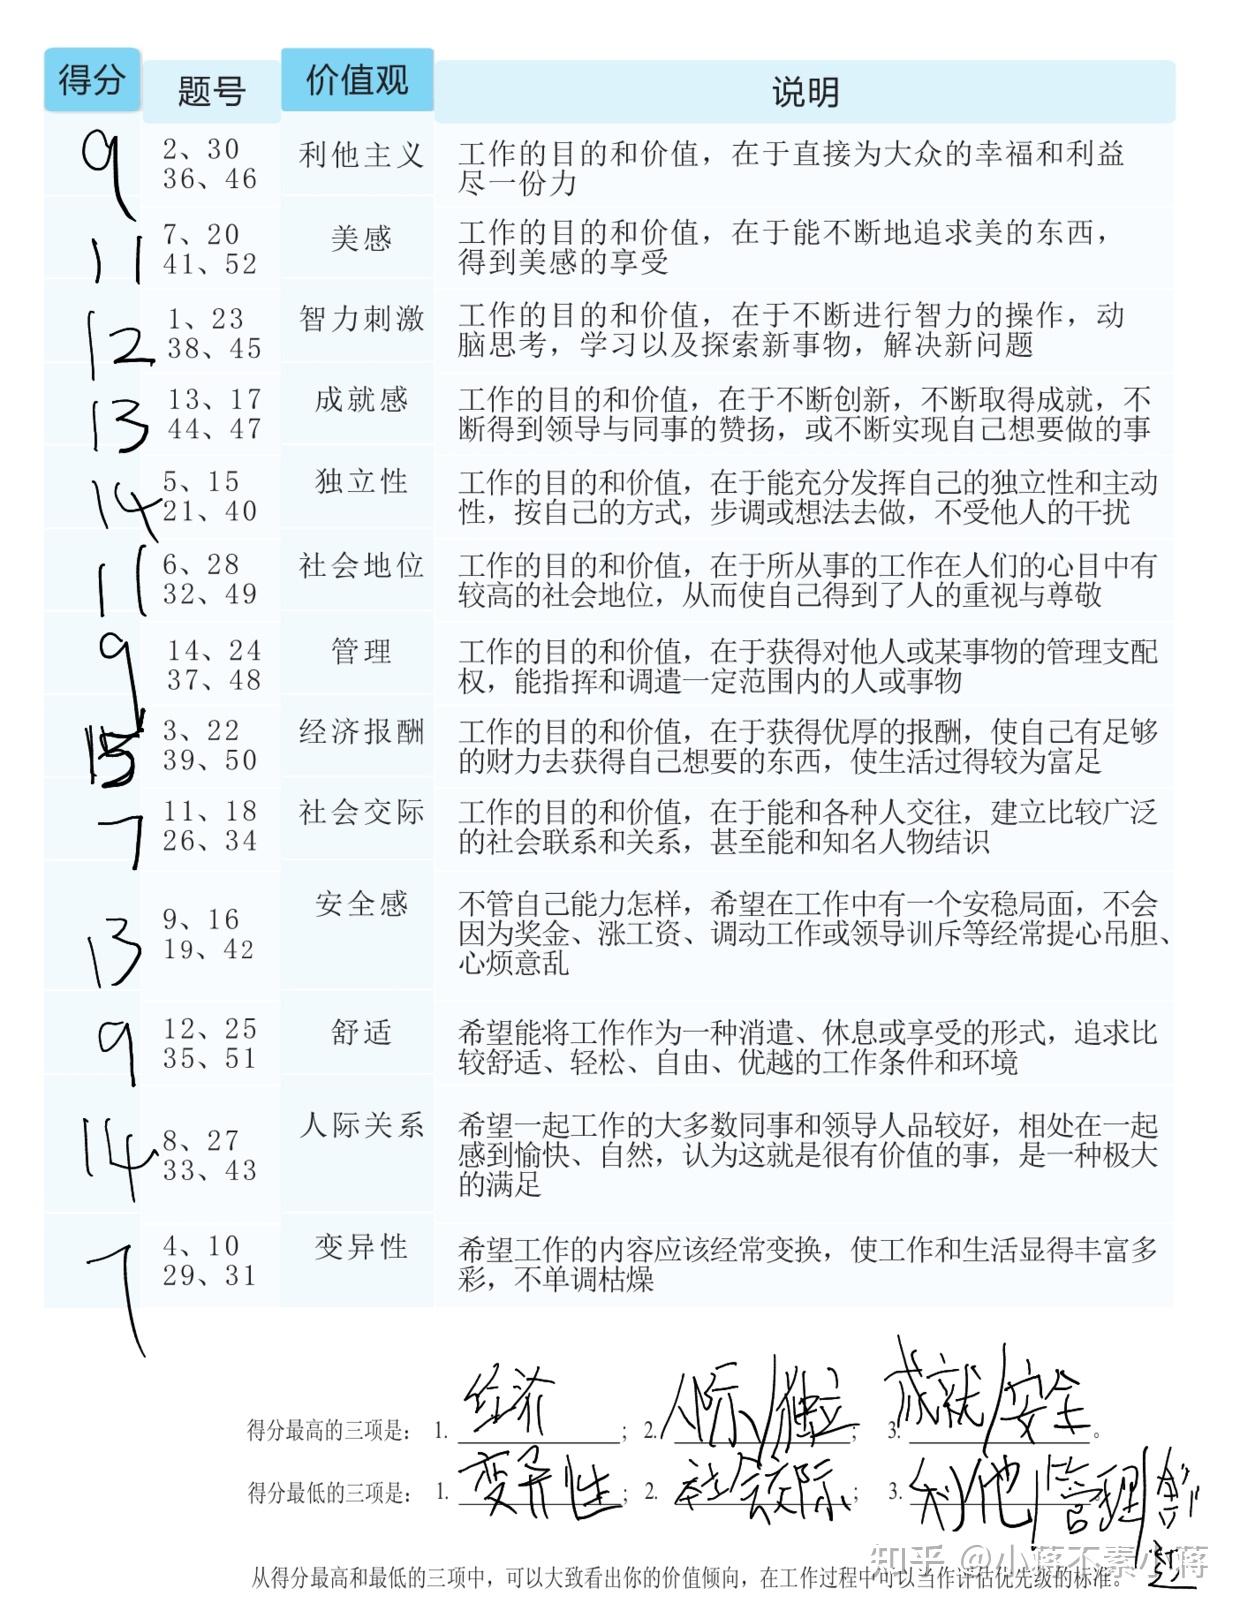 得分 题号 价值观 说明
9 2、30 利他主义 工作的目的和价值，在于直接为大众的幸福和利益
36、46 尽一份力
11 7、20 美感 工作的目的和价值，在于能不断地追求美的东西，
41、52 得到美感的享受
12 1、23 智力刺激 工作的目的和价值，在于不断进行智力的操作，动
38、45 脑思考，学习以及探索新事物，解决新问题
13 13、17 成就感 工作的目的和价值，在于不断创新，不断取得成就，不
44、47 断得到领导与同事的赞扬，或不断实现自己想要做的事
14 5、15 独立性 工作的目的和价值，在于能充分发挥自己的独立性和主动
21、40 性，按自己的方式，步调或想法去做，不受他人的干扰
11 6、28 社会地位 工作的目的和价值，在于所从事的工作在人们的心目中有
32、49 较高的社会地位，从而使自己得到了人的重视与尊敬
9 14、24 管理 工作的目的和价值，在于获得对他人或某事物的管理支配
37、48 权，能指挥和调遣一定范围内的人或事物
15 3、22 经济报酬 工作的目的和价值，在于获得优厚的报酬，使自己有足够
39、50 的财力去获得自己想要的东西，使生活过得较为富足
7 11、18 社会交际 工作的目的和价值，在于能和各种人交往，建立比较广泛
26、34 的社会联系和关系，甚至能和知名人物结识
13 9、16 安全感 不管自己能力怎样，希望在工作中有一个安稳局面，不会
19、42 因为奖金、涨工资、调动工作或领导训斥等经常提心吊胆、
心烦意乱
9 12、25 舒适 希望能将工作作为一种消遣、休息或享受的形式，追求比
35、51 较舒适、轻松、自由、优越的工作条件和环境
14 8、27 人际关系 希望一起工作的大多数同事和领导人品较好，相处在一起
33、43 感到愉快、自然，认为这就是很有价值的事，是一种极大
的满足
7 4、10 变异性 希望工作的内容应该经常变换，使工作和生活显得丰富多
29、31 彩，不单调枯燥
得分最高的三项是： 1. 经济； 2. 人际/独立； 3. 成就/安全。
得分最低的三项是： 1. 变异性； 2. 社会交际； 3. 利他/管理/舒适
从得分最高和最低的三项中，可以大致看出你的价值倾向，在工作过程中可以当作评估优先级的标准。
知乎 @小蒋不素小蒋